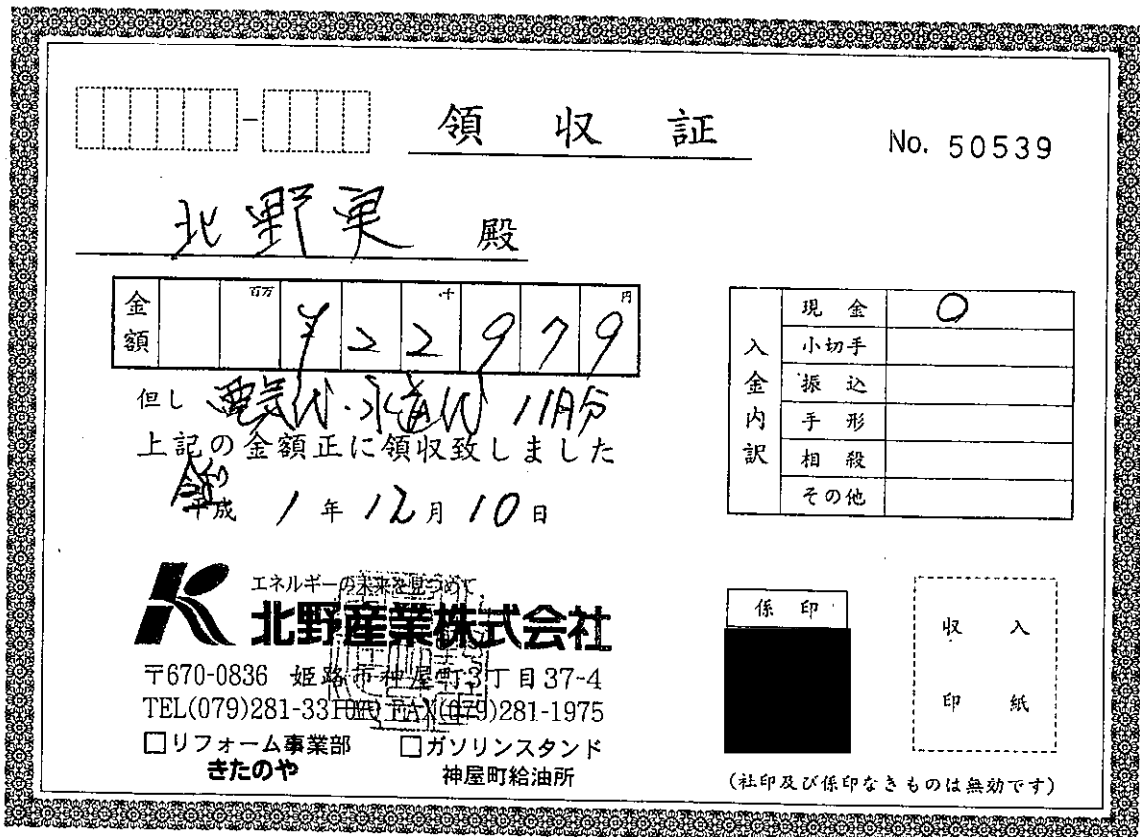 領収証
No. 50539
北野実 殿
金額 百万 千 円
¥22979
但し 電気代・水道代 11月分
上記の金額正に領収致しました
令和 平成 1年12月10日
入金内訳
現金 ○
小切手
振込
手形
相殺
その他
エネルギーの未来を見つめて
北野産業株式会社
〒670-0836 姫路市神屋町3丁目37-4
TEL(079)281-3310㈹ FAX(079)281-1975
□リフォーム事業部 □ガソリンスタンド
きたのや 神屋町給油所
係印
収入
印紙
(社印及び係印なきものは無効です)